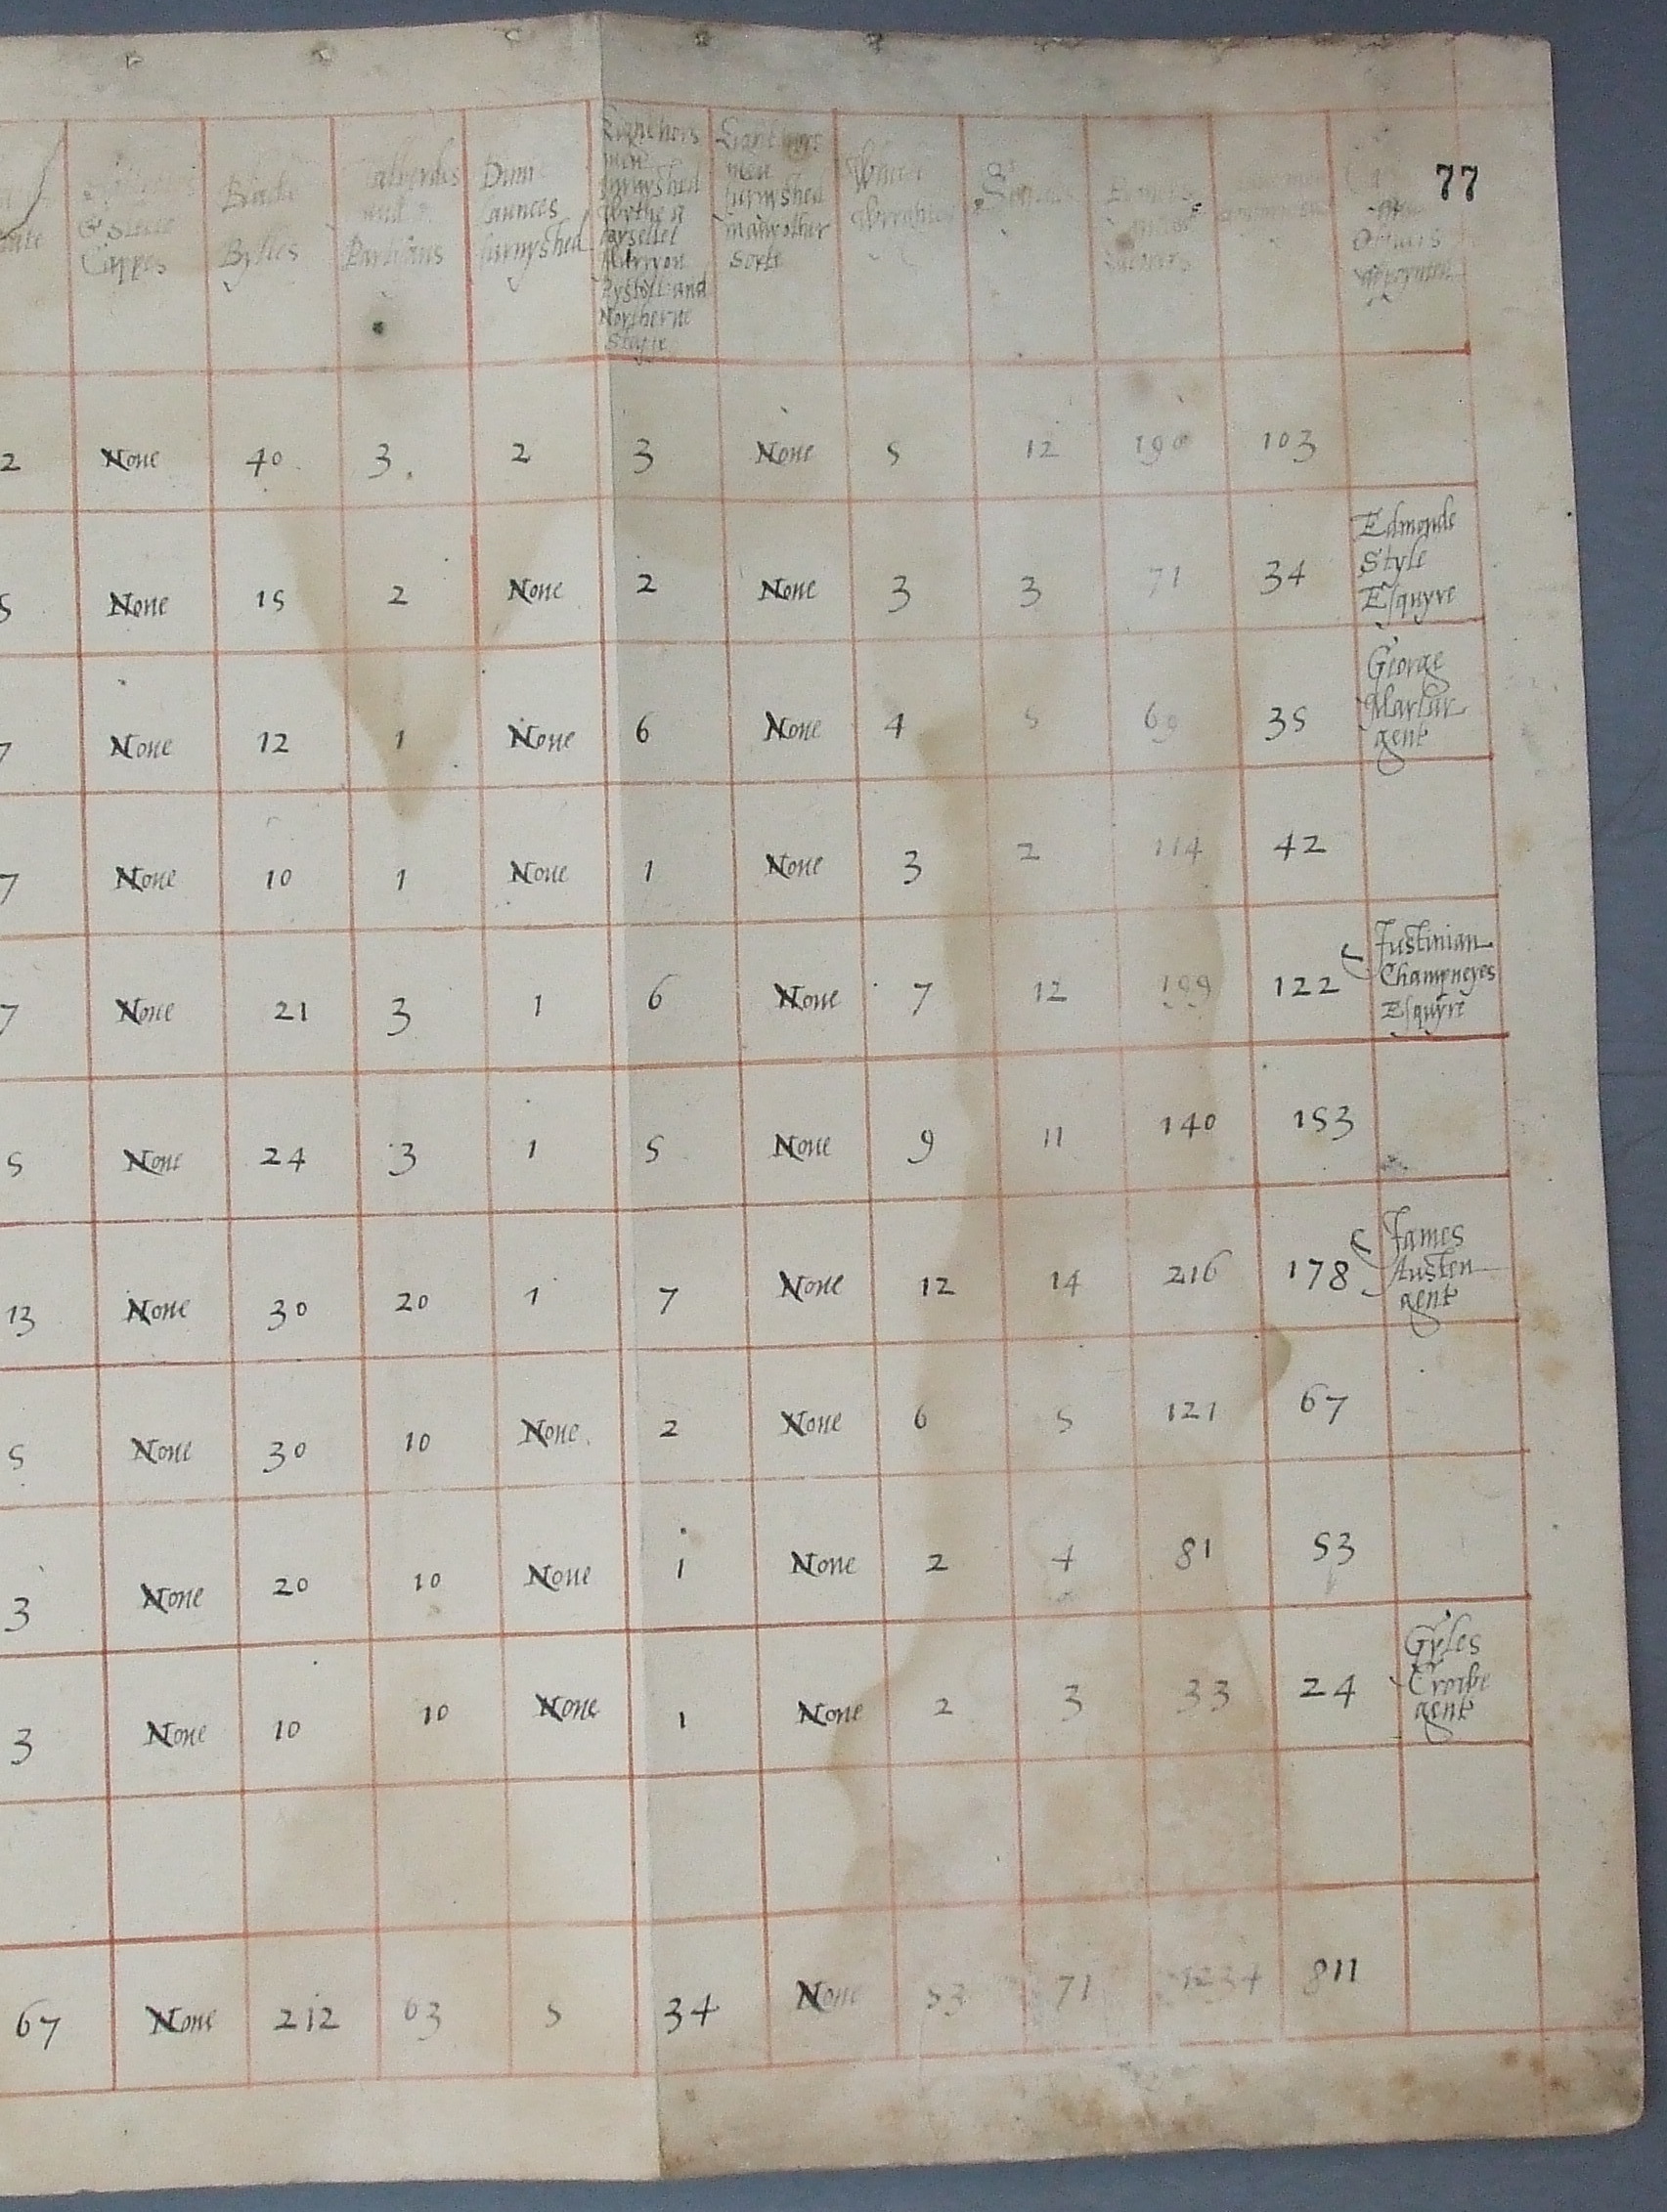 77
& Steele
Cappes
Blacke
Bylles
and
Partisans
Dimi
launces
furnyshed
men
furnyshed
Northerne
men
furnyshed
other
sorte
2 None 40 3 2 3 None 5 12 190 103
5 None 15 2 None 2 None 3 3 71 34 Edmonde
Style
Esquyre
7 None 12 1 None 6 None 4 5 69 35 George
gent
7 None 10 1 None 1 None 3 2 114 42
7 None 21 3 1 6 None 7 12 199 122 Justinian
Champneyes
Esquyre
5 None 24 3 1 5 None 9 11 140 153
13 None 30 20 1 7 None 12 14 216 178 James
Austen
gent
5 None 30 10 None 2 None 6 5 121 67
3 None 20 10 None 1 None 2 4 81 53
3 None 10 10 None 1 None 2 3 33 24 Gyles
gent
67 None 212 63 5 34 None 53 71 1234 811